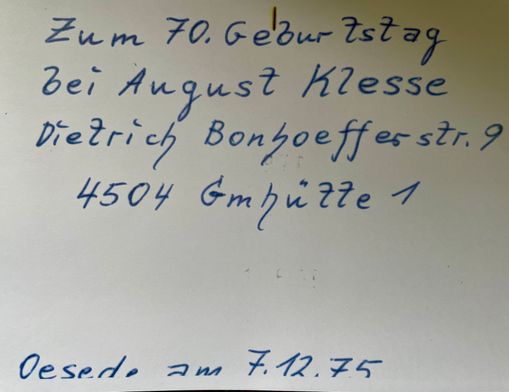 Zum 70. Geburtstag
bei August Klesse
Dietrich Bonhoefferstr. 9
4504 Gmhütte 1
Oesede am 7.12.75